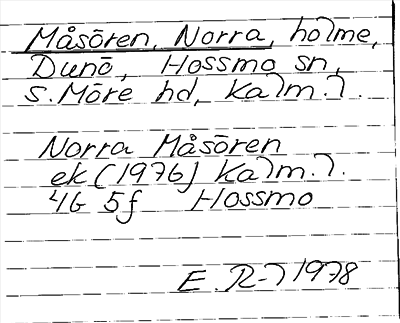 Måsören, Norra, holme,
Dunö, Hossmo sn,
S. Möre hd, Kalm. l.
Norra Måsören
ek (1976) Kalm. l.
4G 5f Hossmo
E. R-l 1978